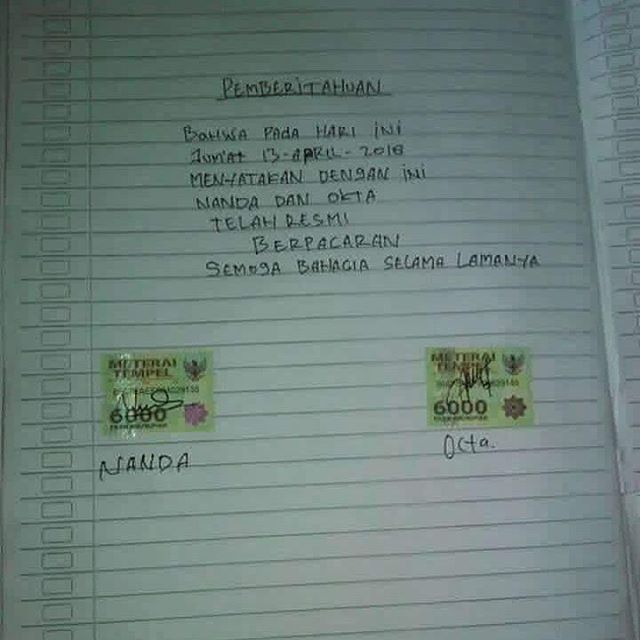 PEMBERITAHUAN
BAHWA PADA HARI INI
JUM'AT 13-APRIL-2018
MENYATAKAN DENGAN INI
NANDA DAN OKTA
TELAH RESMI
BERPACARAN
SEMOGA BAHAGIA SELAMA LAMANYA
METERAI
TEMPEL
6000
METERAI
TEMPEL
6000
NANDA
Octa.